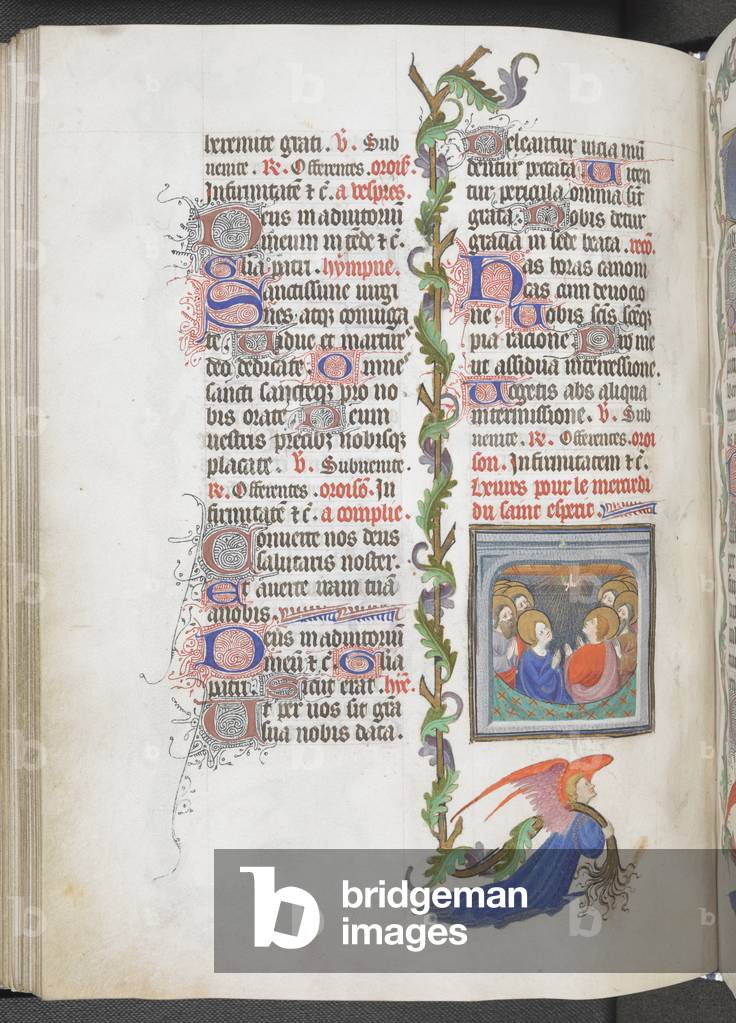 beremite grati. V. Sub
uenite. R. Offerentes. orois.
Infirmitate & c. a vespres.
Deus in adiutoriu
meum intēde & c.
Glīa patri. hympne.
Sanctissime uirgi
nes. atq coniuga
te Uidue et martire
deo dedicate Omne
sancti sanctecq pro no
bis orate Deum
uestris precibz nobisq
placate. V. Subuenite.
R. Offerentes. oroisō. In
firmitatē & c. a complie.
Conuerte nos deus
salutaris noster.
Et auerte iram tuā
anobis.
Deus in adiutoriū
meū & c. Glīa
patri. Sicut erat. hȳē.
Ut per uos sit grā
sua nobis data.
Deleantur uicia mū
dentur peccata Uiten
tur pericula omnia sīt
grata. Nobis detur
gracia in sede beata. recō.
Has horas canoni
cas cum deuocio
ne. Uobis scās scēq
pia racione. Pro me
ut assidua intercessione.
Uogetis abs aliqua
intermissione. V. Sub
uenite. R. Offerentes. oroi
son. Infirmitatem & c.
heures pour le mercredi
du saint esperit.
bridgeman
images